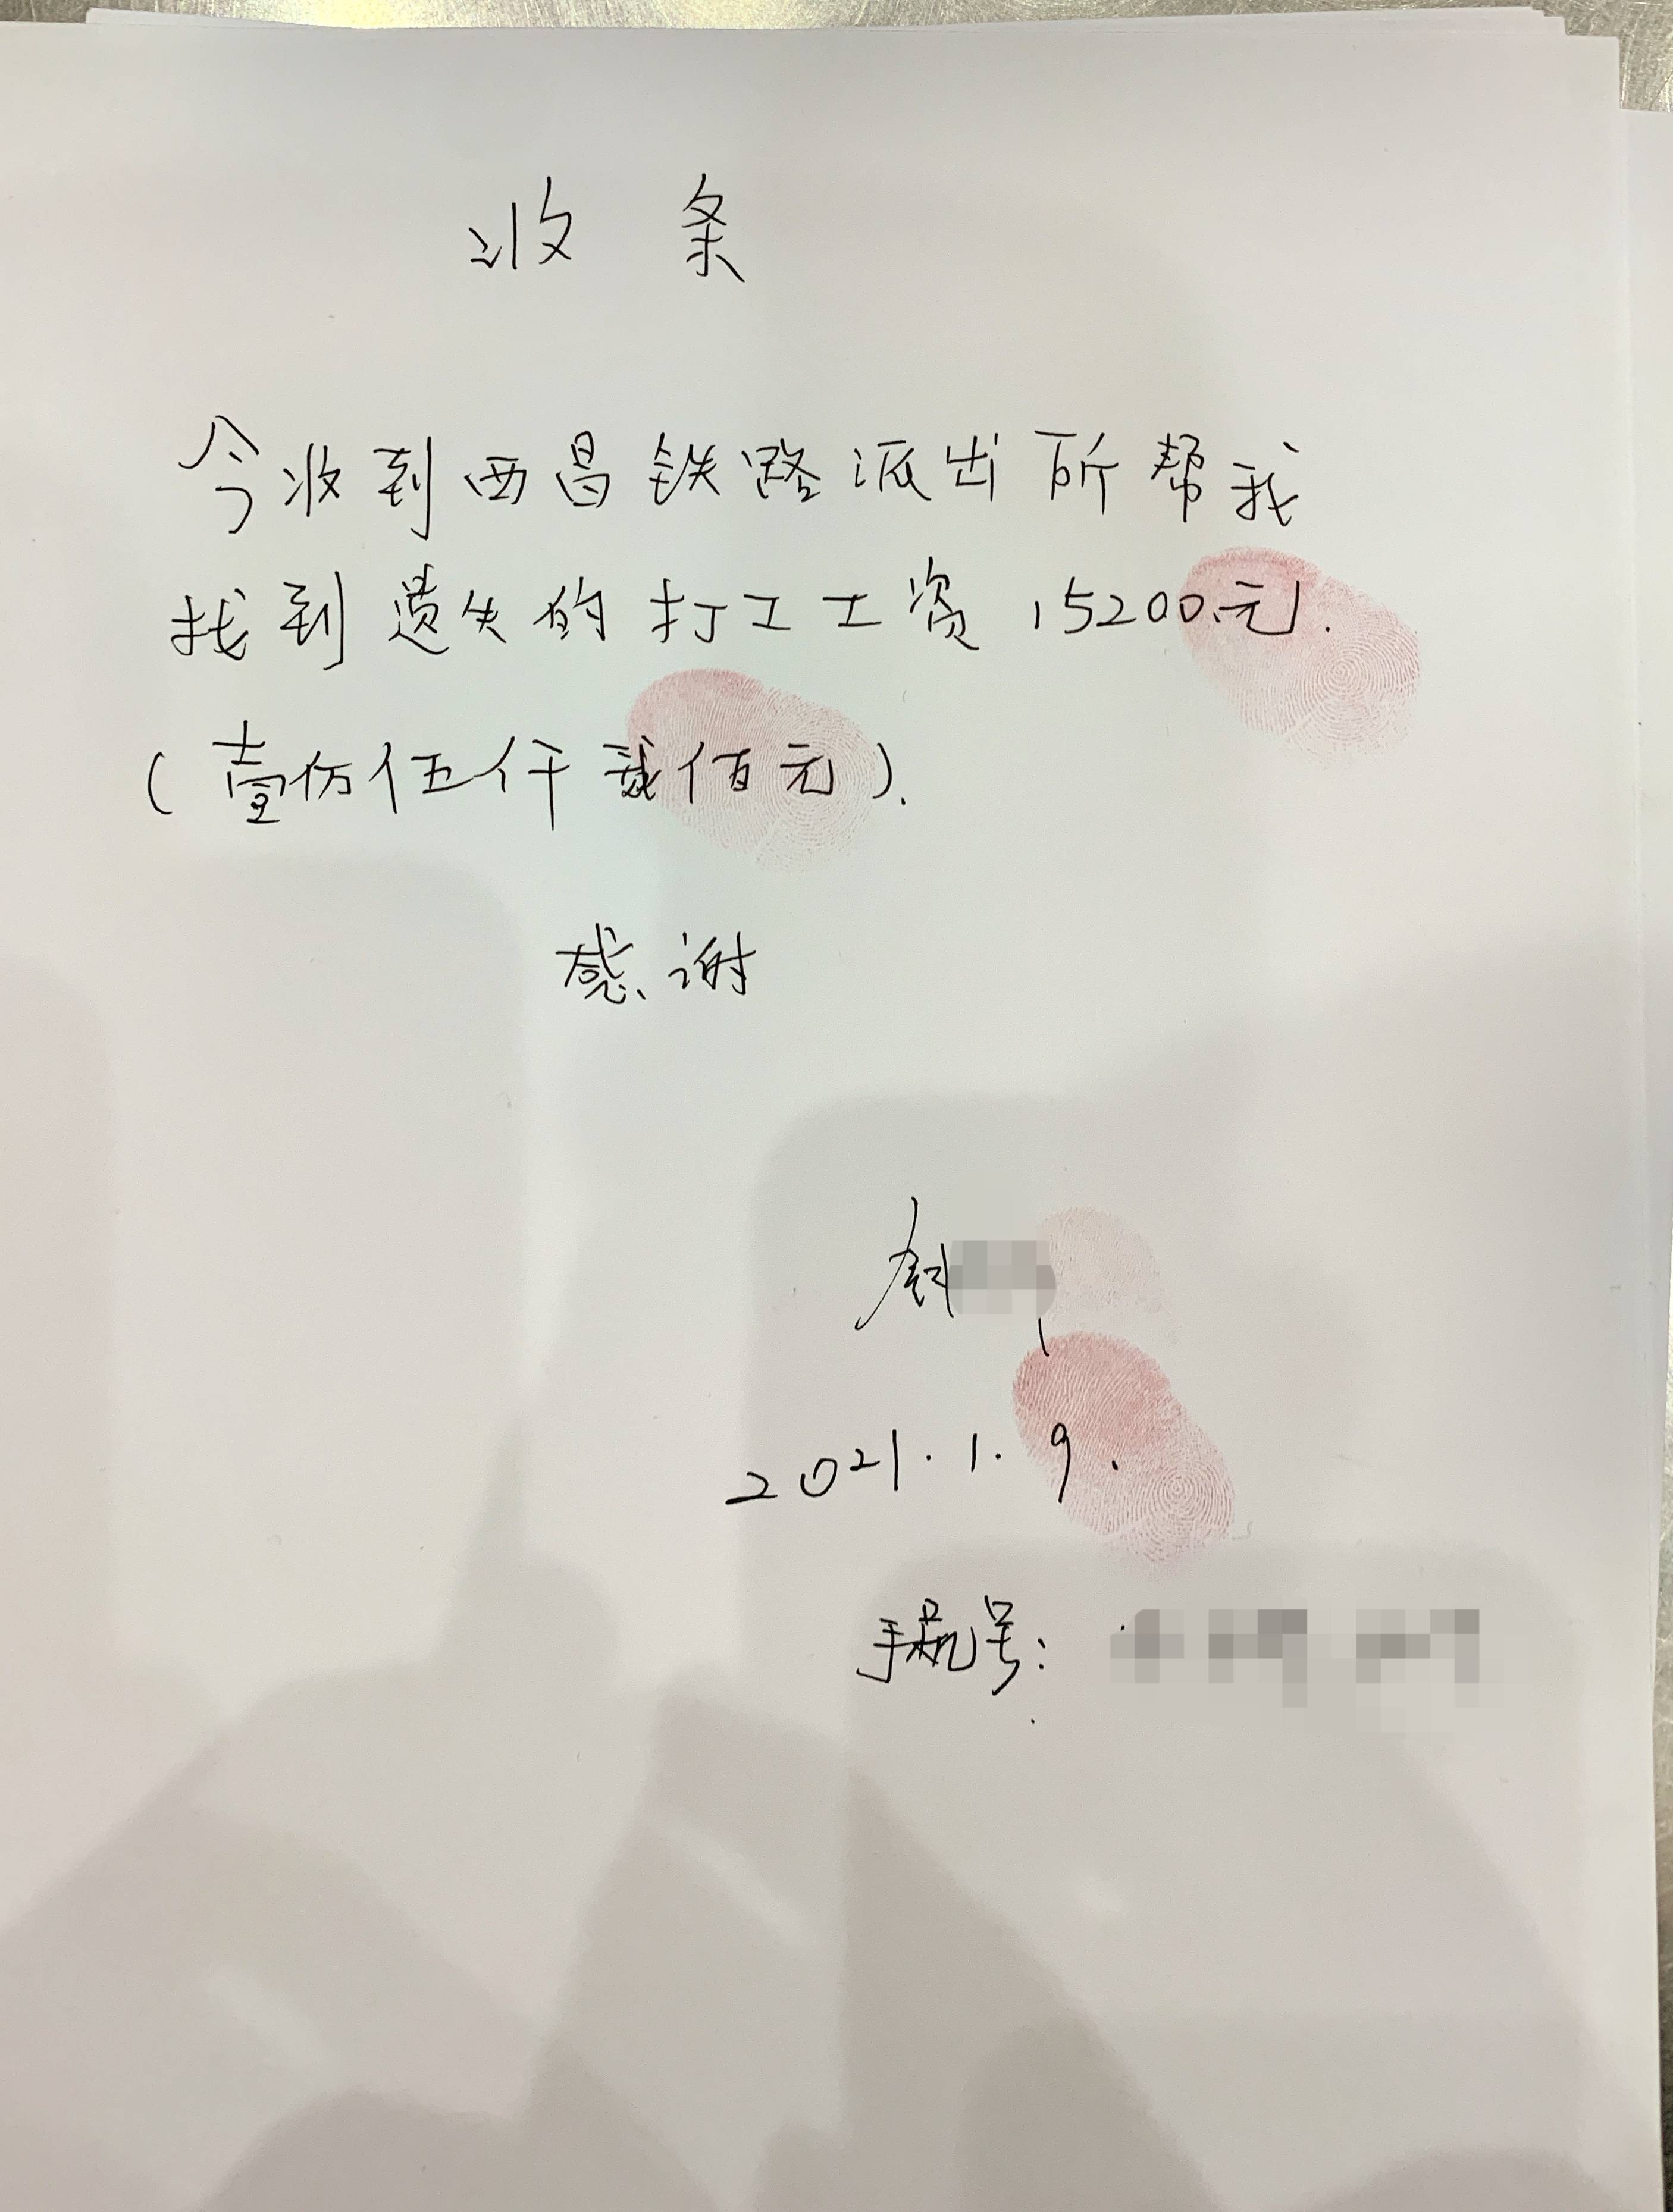 收条
今收到西昌铁路派出所帮我
找到遗失的打工工资15200元.
(壹仿伍仟贰佰元).
感谢
2021.1.9.
手机号: